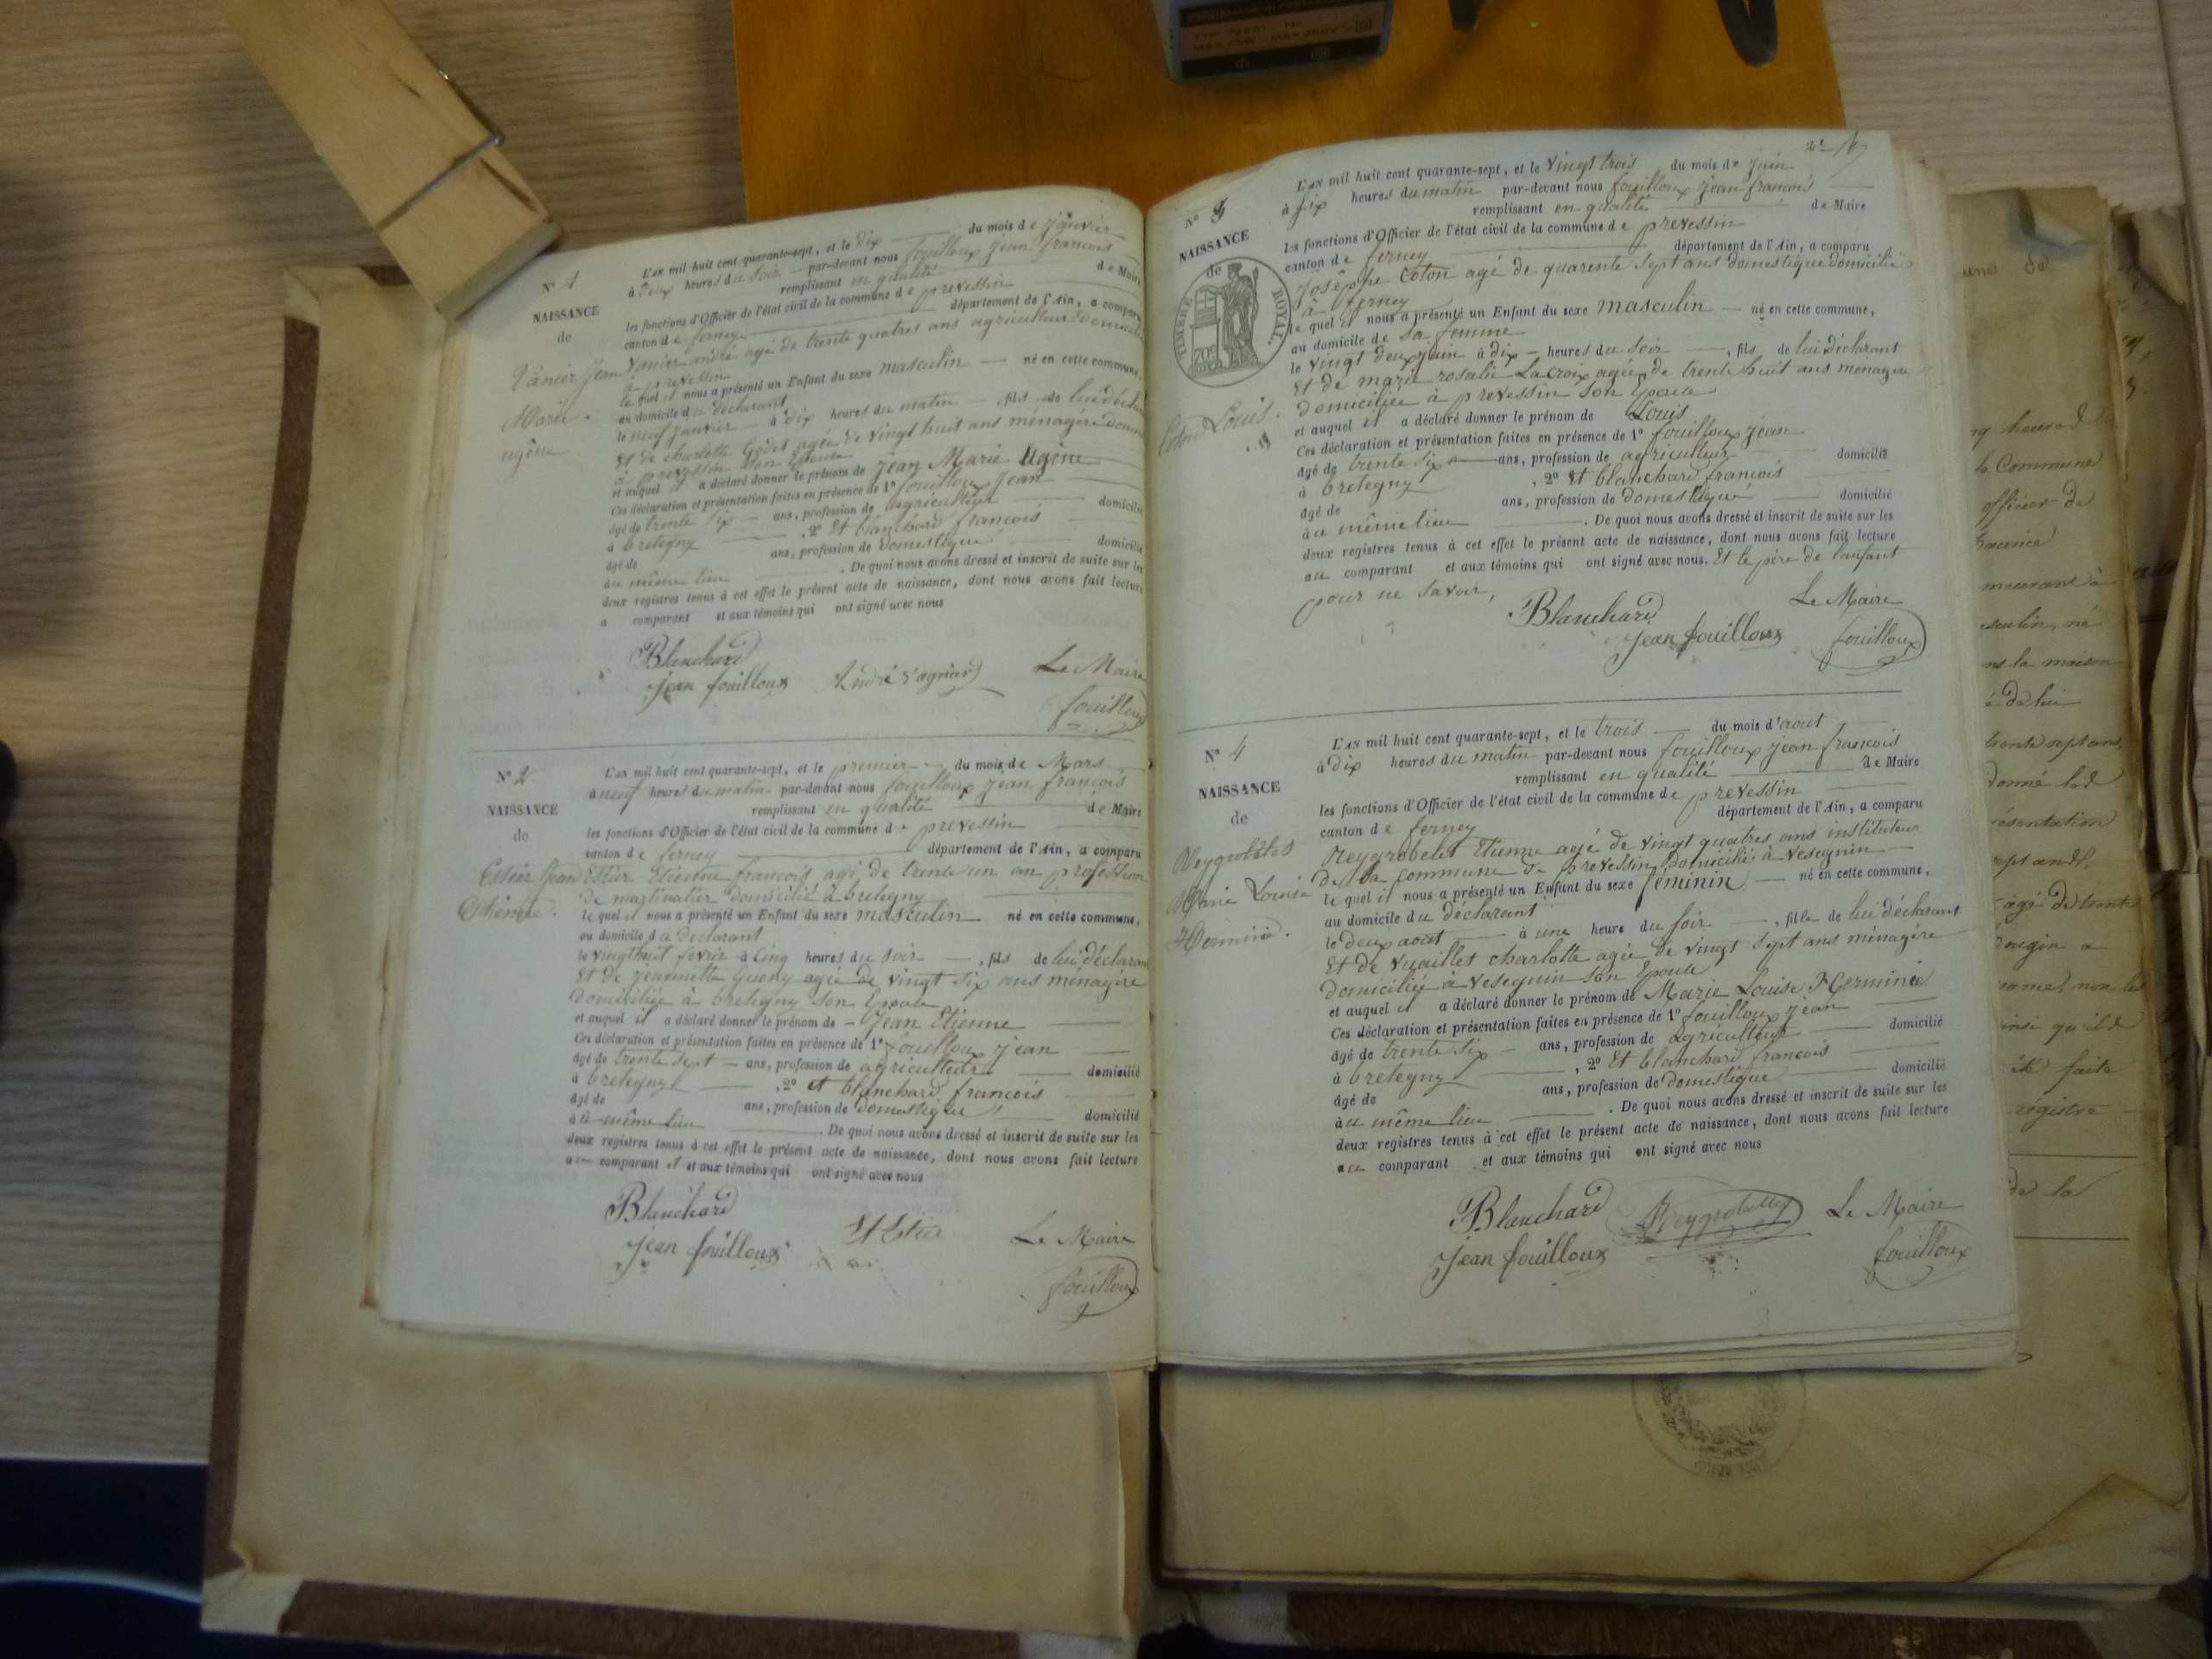 N° 1
NAISSANCE
de
Jean
Marie
ugène
L'an mil huit cent quarante-sept, et le dix du mois de janvier
à deux heures du soir par-devant nous fouilloux jean francois
remplissant en qualité de Maire
les fonctions d'Officier de l'état civil de la commune de prevessin
canton de ferney département de l'Ain, a comparu
Vanier andré agé de trente quatres ans agriculteur
à prevessin
le quel il nous a présenté un Enfant du sexe masculin né en cette commune,
au domicile du déclarant
le neuf janvier à dix heures du matin , fils de lui
Et de charlotte agée de vingt huit ans ménagére
à prevessin son Epouse
et auquel il a déclaré donner le prénom de jean Marie Ugène
Ces déclaration et présentation faites en présence de 1° fouilloux jean
âgé de trente six ans, profession de agriculteur domicilié
à bretegny , 2° Et blanchard francois
âgé de ans, profession de domestique domicilié
au même lieu . De quoi nous avons dressé et inscrit de suite sur les
deux registres tenus à cet effet le présent acte de naissance, dont nous avons fait lecture
a comparant et aux témoins qui ont signé avec nous
Blanchard
jean fouilloux André Vagnier Le Maire
fouilloux
N° 2
NAISSANCE
de
Estier Jean
Etienne.
L'an mil huit cent quarante-sept, et le premier du mois de Mars
à neuf heures du matin par-devant nous fouilloux jean francois
remplissant en qualité de Maire
les fonctions d'Officier de l'état civil de la commune de prevessin
canton de ferney département de l'Ain, a comparu
Estier Etienne francois agé de trente un an profession
de domicilié à bretegny
le quel il nous a présenté un Enfant du sexe masculin né en cette commune,
au domicile du declarant
le vingthuit fevrie à cinq heures du soir , fils de lui déclarant
Et de jeannette agée de vingt six ans ménagére
domiciliée à bretegny son Epouse
et auquel il a déclaré donner le prénom de Jean Etienne
Ces déclaration et présentation faites en présence de 1° fouilloux jean
âgé de trente sept ans, profession de agriculteur domicilié
à bretegny , 2° et blanchard francois
âgé de ans, profession de domestique domicilié
au même lieu . De quoi nous avons dressé et inscrit de suite sur les
deux registres tenus à cet effet le présent acte de naissance, dont nous avons fait lecture
au comparant et et aux témoins qui ont signé avec nous
Blanchard
jean fouilloux Le Maire
fouilloux
N° 3
NAISSANCE
de
TIMBRE ROYAL
70c
Coton Louis.
L'an mil huit cent quarante-sept, et le vingt trois du mois de juin
à six heures du matin par-devant nous fouilloux jean francois
remplissant en qualité de Maire
les fonctions d'Officier de l'état civil de la commune de prevessin
canton de ferney département de l'Ain, a comparu
Joseph Coton agé de quarente sept ans domestique domicilié
à ferney
le quel il nous a présenté un Enfant du sexe masculin né en cette commune,
au domicile de sa femme
le vingt deux juin à dix heures du soir , fils de lui déclarant
Et de marie rosalie Lacroix agée de trente huit ans ménagére
domiciliée à prevessin son Epouse
et auquel il a déclaré donner le prénom de Louis
Ces déclaration et présentation faites en présence de 1° fouilloux jean
âgé de trente six ans, profession de agriculteur domicilié
à bretegny , 2° Et blanchard francois
âgé de ans, profession de domestique domicilié
au même lieu . De quoi nous avons dressé et inscrit de suite sur les
deux registres tenus à cet effet le présent acte de naissance, dont nous avons fait lecture
au comparant et aux témoins qui ont signé avec nous. Et le père de l'anfant
pour ne savoir,
Blanchard Le Maire
jean fouilloux fouilloux
N° 4
NAISSANCE
de
Marie Louise
Hermine.
L'an mil huit cent quarante-sept, et le trois du mois d'aout
à dix heures du matin par-devant nous fouilloux jean francois
remplissant en qualité de Maire
les fonctions d'Officier de l'état civil de la commune de prevessin
canton de ferney département de l'Ain, a comparu
Neygrobelet Etienne agé de vingt quatres ans instituteur
de la commune de prevessin domicilié à vesegnin
le quel il nous a présenté un Enfant du sexe féminin né en cette commune,
au domicile du déclarant
le deux aout à une heure du soir , fille de lui déclarant
Et de Vuaillet charlotte agée de vingt sept ans ménagére
domiciliée à vesegnin son Epouse
et auquel il a déclaré donner le prénom de Marie Louise Herminie
Ces déclaration et présentation faites en présence de 1° fouilloux jean
âgé de trente six ans, profession de agriculteur domicilié
à bretegny , 2° Et blanchard francois
âgé de ans, profession de domestique domicilié
au même lieu . De quoi nous avons dressé et inscrit de suite sur les
deux registres tenus à cet effet le présent acte de naissance, dont nous avons fait lecture
au comparant et aux témoins qui ont signé avec nous
Blanchard Le Maire
jean fouilloux fouilloux
la Commune
officier de
la maison
de lui
trente sept ans,
faite
régistre
de la